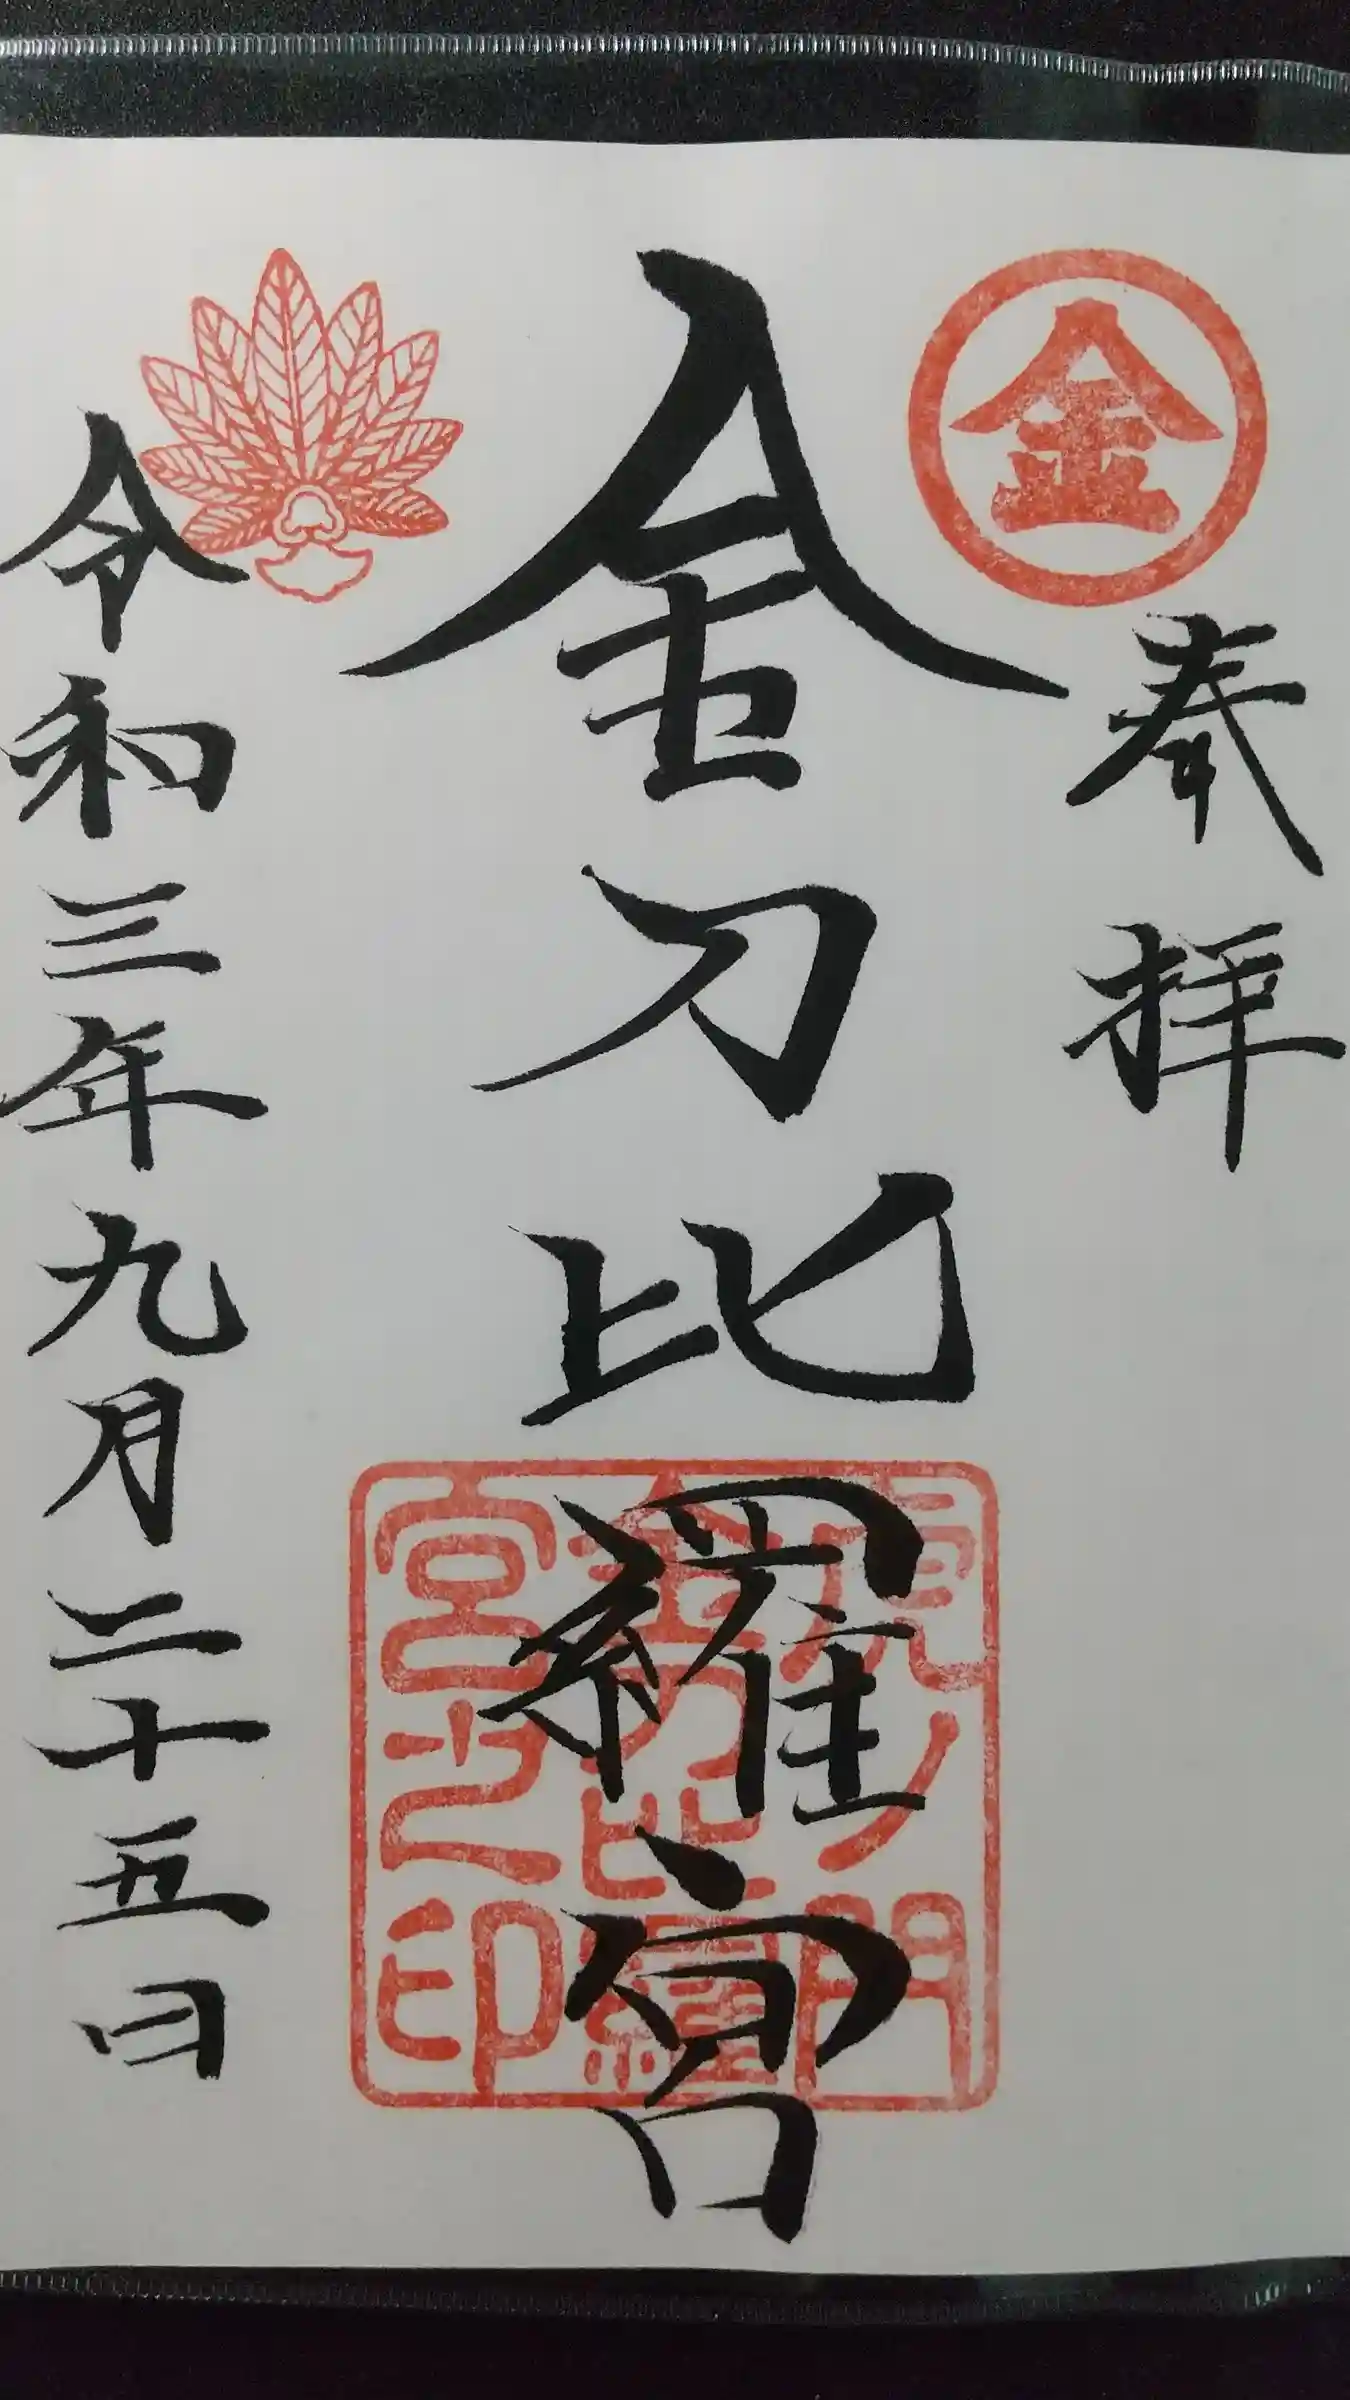 金
奉拝
金刀比羅宮
虎ノ門
金刀比羅
宮之印
令和三年九月二十五日